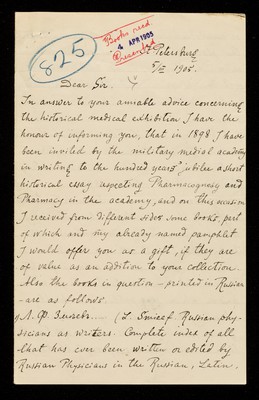 825
Books read
4 APR 1905
Presented
St Petersburg
1905.
Dear Sir.
In answer to your amiable advice concerning
the historical medical exhibition I have the
honour of informing you, that in 1898 I have
been invited by the military medical academy
in writing to the hundred years' jubilee a short
historical essay respecting Pharmacognosy and
Pharmacy in the academy, and on this occasion
I received from different sides some books, part
of which and my already named pamphlet
I would offer you as a gift, if they are
of value as an addition to your collection.
Also the books in question - printed in Russian
- are as follows.
Л. Ф. Змѣевъ. (L. Smieef. Russian phy-
sicians as writers. Complete index of all
that has ever been written or edited by
Russian Physicians in the Russian, Latin,